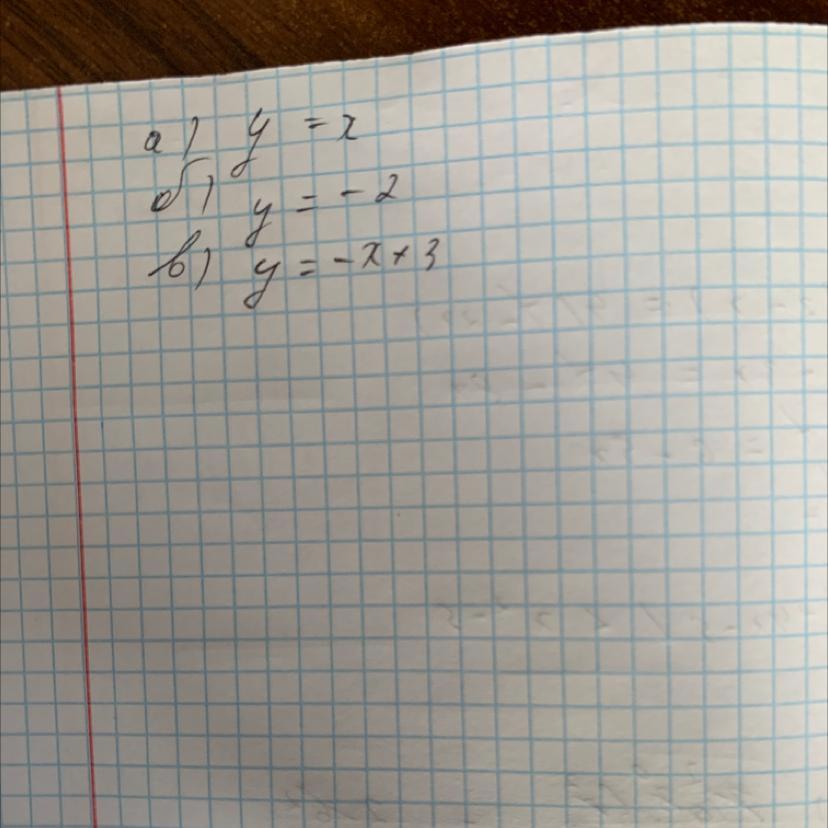 а) y = x
б) y = -2
в) y = -x + 3